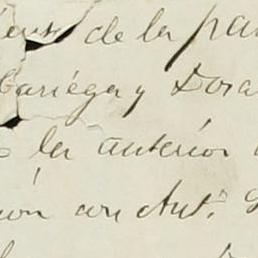 de la par
Cariega y Dora
la anterior
ion con Ant.º